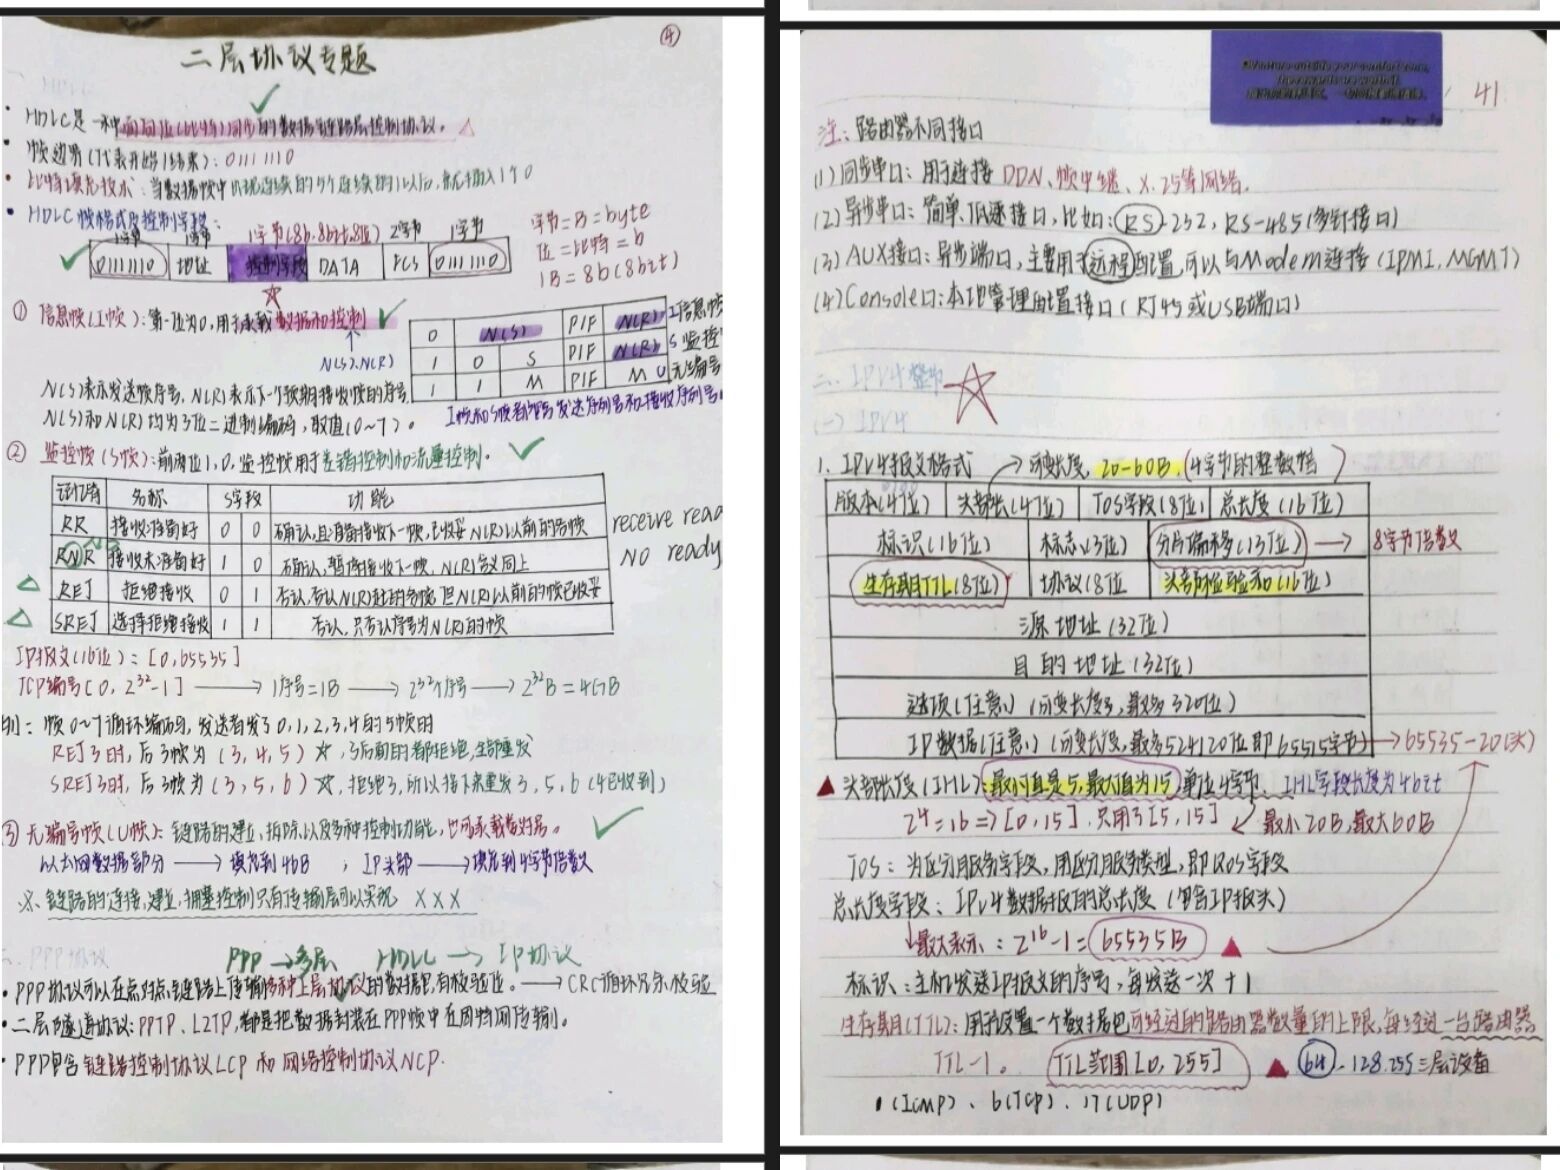 ④
二层协议专题
HDLC是一种面向位(比特)同步的数据链路层控制协议。
帧边界(代表开始/结束):01111110
比特填充技术:当数据帧中出现连续的5个连续的1以后,就插入1个0
HDLC帧格式及控制字段:
1字节 1字节 1字节(8b.8bit.8位) 2字节 1字节
01111110 地址 控制字段 DATA FCS 01111110
字节=B=byte
位=比特=b
1B=8b(8bit)
① 信息帧(I帧):第一位为0,用于承载数据和控制
N(S),N(R)
0 N(S) P/F N(R) I信息帧
1 0 S P/F N(R) S监控
1 1 M P/F M U无编号
N(S)表示发送帧序号,N(R)表示下一个预期接收帧的序号
N(S)和N(R)均为3位二进制编码,取值(0~7)。
I帧和S帧都
② 监控帧(S帧):前两位1,0,监控帧用于差错控制和流量控制。
记忆 名称 S字段 功能
RR 接收准备好 0 0 确认,且准备接收下一帧,已收妥N(R)以前的各帧
receive read
RNR 接收未准备好 1 0 确认,暂停接收下一帧,N(R)含义同上
NO ready
REJ 拒绝接收 0 1 否认,否认N(R)起的各帧,但N(R)以前的帧已收妥
SREJ 选择拒绝接收 1 1 否认,只否认序号为N(R)的帧
IP报文(16位):[0,65535]
TCP编号[0, 2³²-1] → 1序号=1B → 2³²个序号 → 2³²B=4GB
例:帧0~7循环编码,发送者发了0,1,2,3,4的5帧时
REJ3时,后3帧为(3,4,5)☆,3后面的都拒绝,全部重发
SREJ3时,后3帧为(3,5,6)☆,拒绝3,所以接下来重发3,5,6(4已收到)
③ 无编号帧(U帧):链路的建立,拆除以及多种控制功能,也可承载数据。
以太网数据部分 → 填充到46B ; IP头部 → 填充到4字节倍数
※.链路的连接,建立,拥塞控制只有传输层可以实现 XXX
二、PPP协议
PPP→多层 HDLC→IP协议
• PPP协议可以在点对点链路上传输多种上层协议的数据包,有校验位。→CRC循环冗余校验
• 二层隧道协议:PPTP、L2TP,都是把数据封装在PPP帧中在因特网传输。
• PPP包含链路控制协议LCP和网络控制协议NCP.
41
注:路由器不同接口
(1)同步串口:用于连接DDN、帧中继、X.25等网络.
(2)异步串口:简单低速接口,比如:RS-232,RS-485(多针接口)
(3)AUX接口:异步端口,主要用于远程配置,可以与Modem连接(IPMI,MGMT)
(4)Console口:本地管理配置接口(RJ45或USB端口)
(一)IPV4
1. IPV4报文格式 → 可变长度,20-60B.(4字节的整数倍)
版本(4位) 头部长(4位) TOS字段(8位) 总长度(16位)
标识(16位) 标志(3位) 分片偏移(13位) → 8字节倍数
生存期TTL(8位) 协议(8位 头部校验和(16位)
源地址(32位)
目的地址(32位)
选项(任意)(可变长度,最多320位)
IP数据(任意)(可变长度,最多524120位即65515字节) → 65535-20(头)
▲头部长度(IHL):最小值是5,最大值为15,单位4字节.IHL字段长度为4bit
2⁴=16⇒[0,15].只用[5,15] 最小20B,最大60B
TOS:为区分服务字段,用区分服务类型,即QOS字段
总长度字段:IPv4数据报的总长度(包含IP报头)
最大表示:2¹⁶-1=65535B ▲
标识:主机发送IP报文的序号,每发送一次+1
生存期(TTL):用于设置一个数据包可经过的路由器数量的上限,每经过一台路由器
TTL-1。 TTL范围[0,255] ▲ 64.128.255三层设备
(ICMP)、6(TCP)、17(UDP)